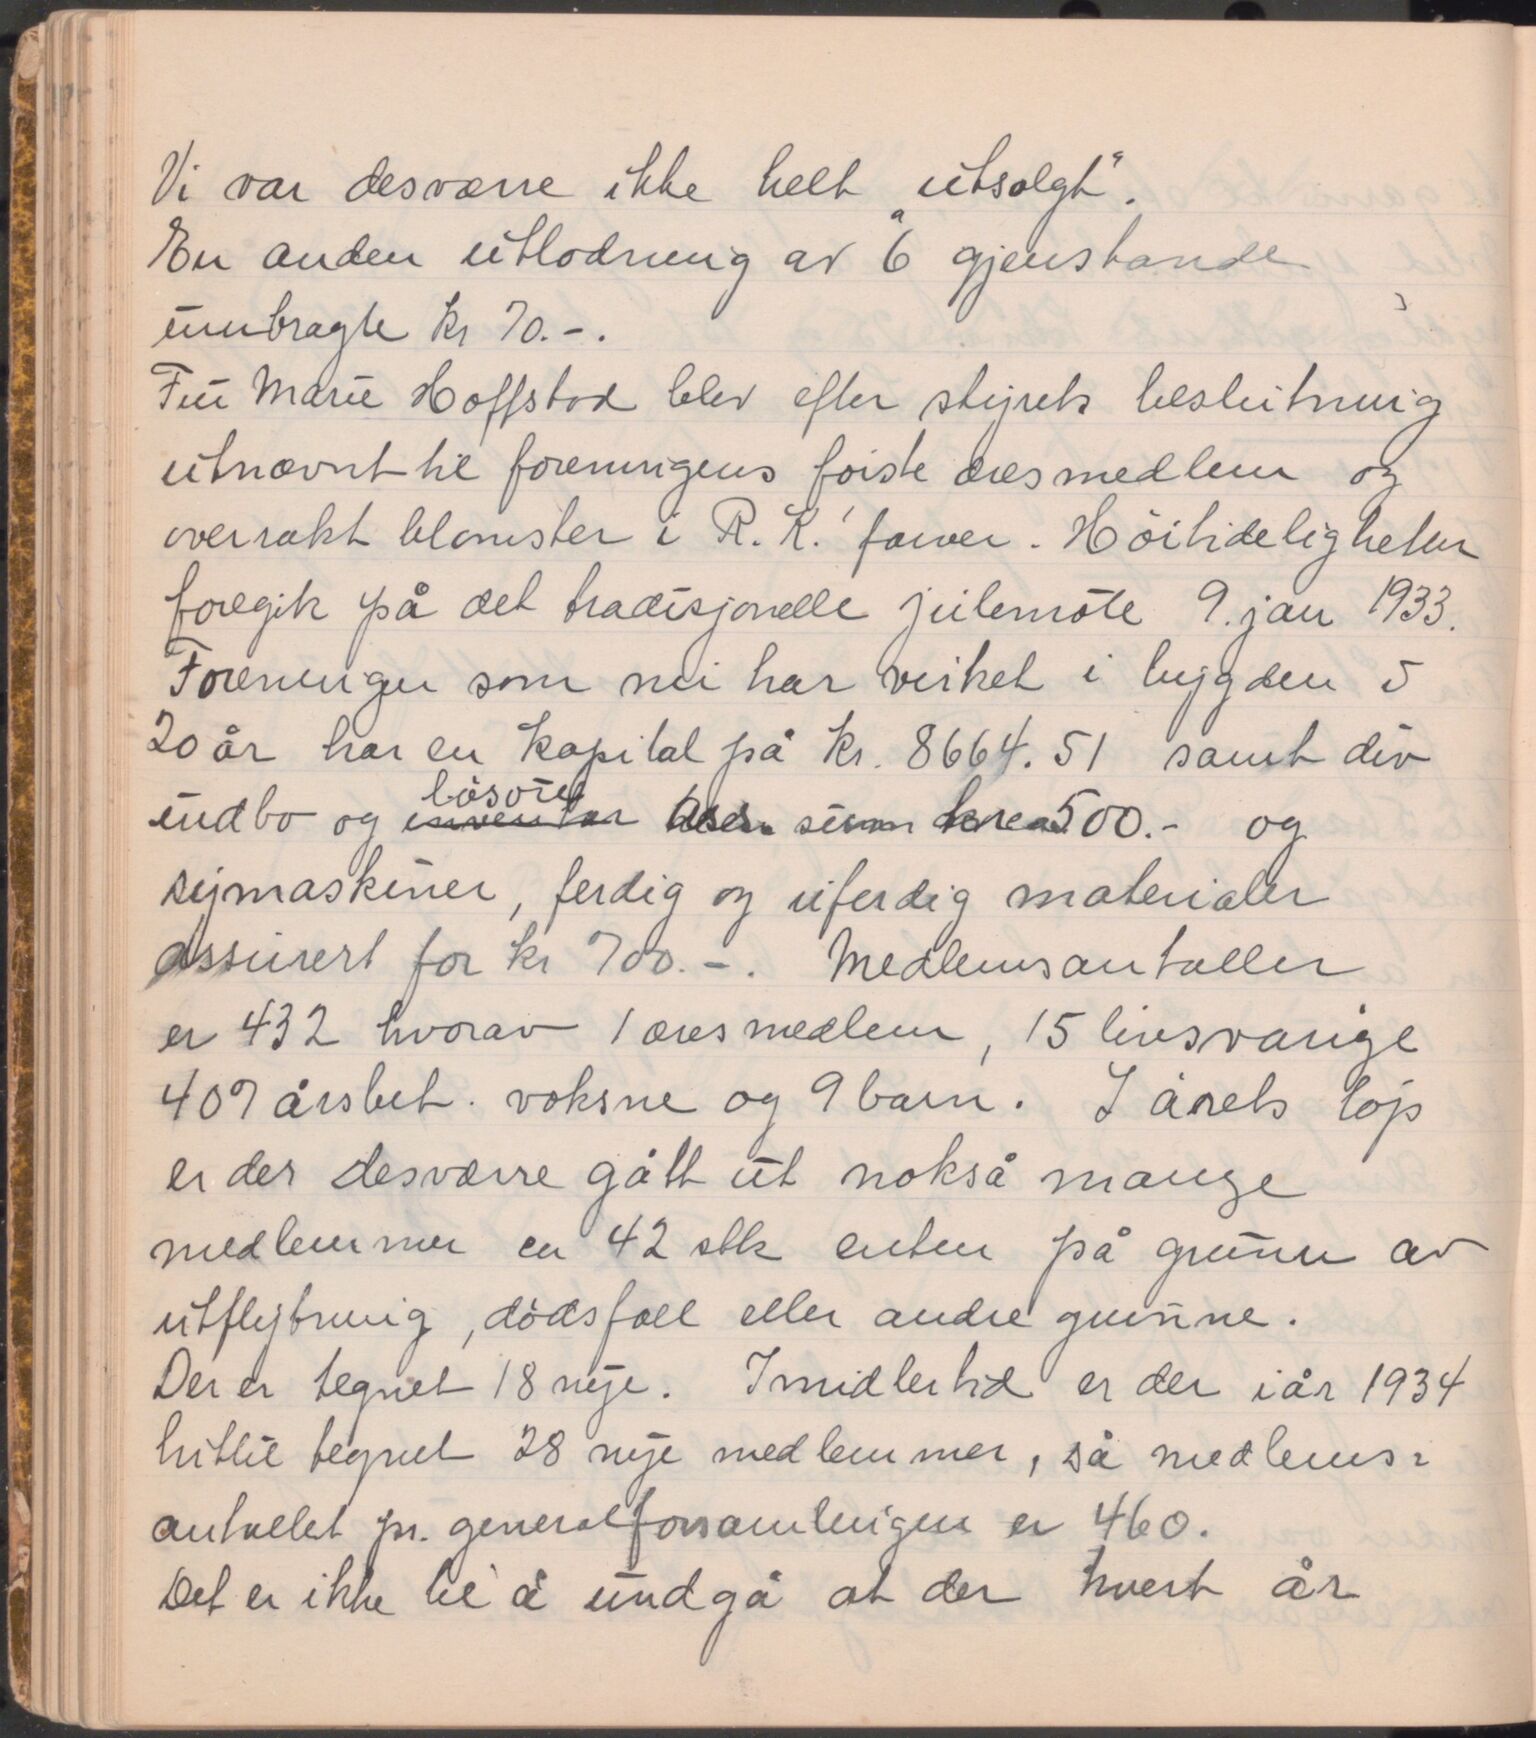 Vi var desværre ikke helt „utsolgt".
En anden utlodning av 6 gjenstande
innbragte kr 70.-.
Frü Marie Hoffstad blev efter styrets beslutning
utnævnt til foreningens første æresmedlem og
overrakt blomster i R.K.' farver. Høitideligheten
foregik på det tradisjonelle julemøte 9. jan 1933.
Foreningen som nu har virket i bygden i
20 år har en kapital på kr. 8664.51 samt div
indbo og løsøre 500.- og
symaskiner, ferdig og uferdig materialer
assurert for kr 700.-. Medlemsantallet
er 432 hvorav 1 æresmedlem, 15 livsvarige
407 årsbet. voksne og 9 barn. I årets løp
er der desværre gått ut nokså mange
medlemmer ca 42 stk enten på grunn av
utflytning, dødsfall eller andre grunne.
Der er tegnet 18 nye. Imidlertid er der iår 1934
hittil tegnet 28 nye medlemmer, så medlems-
antallet pr. generalforsamlingen er 460.
Det er ikke til å undgå at der hvert år